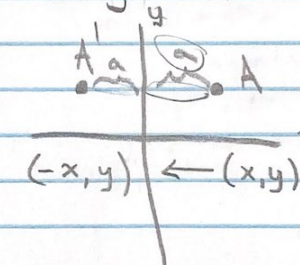 y
A' a a A
(-x, y) ← (x, y)